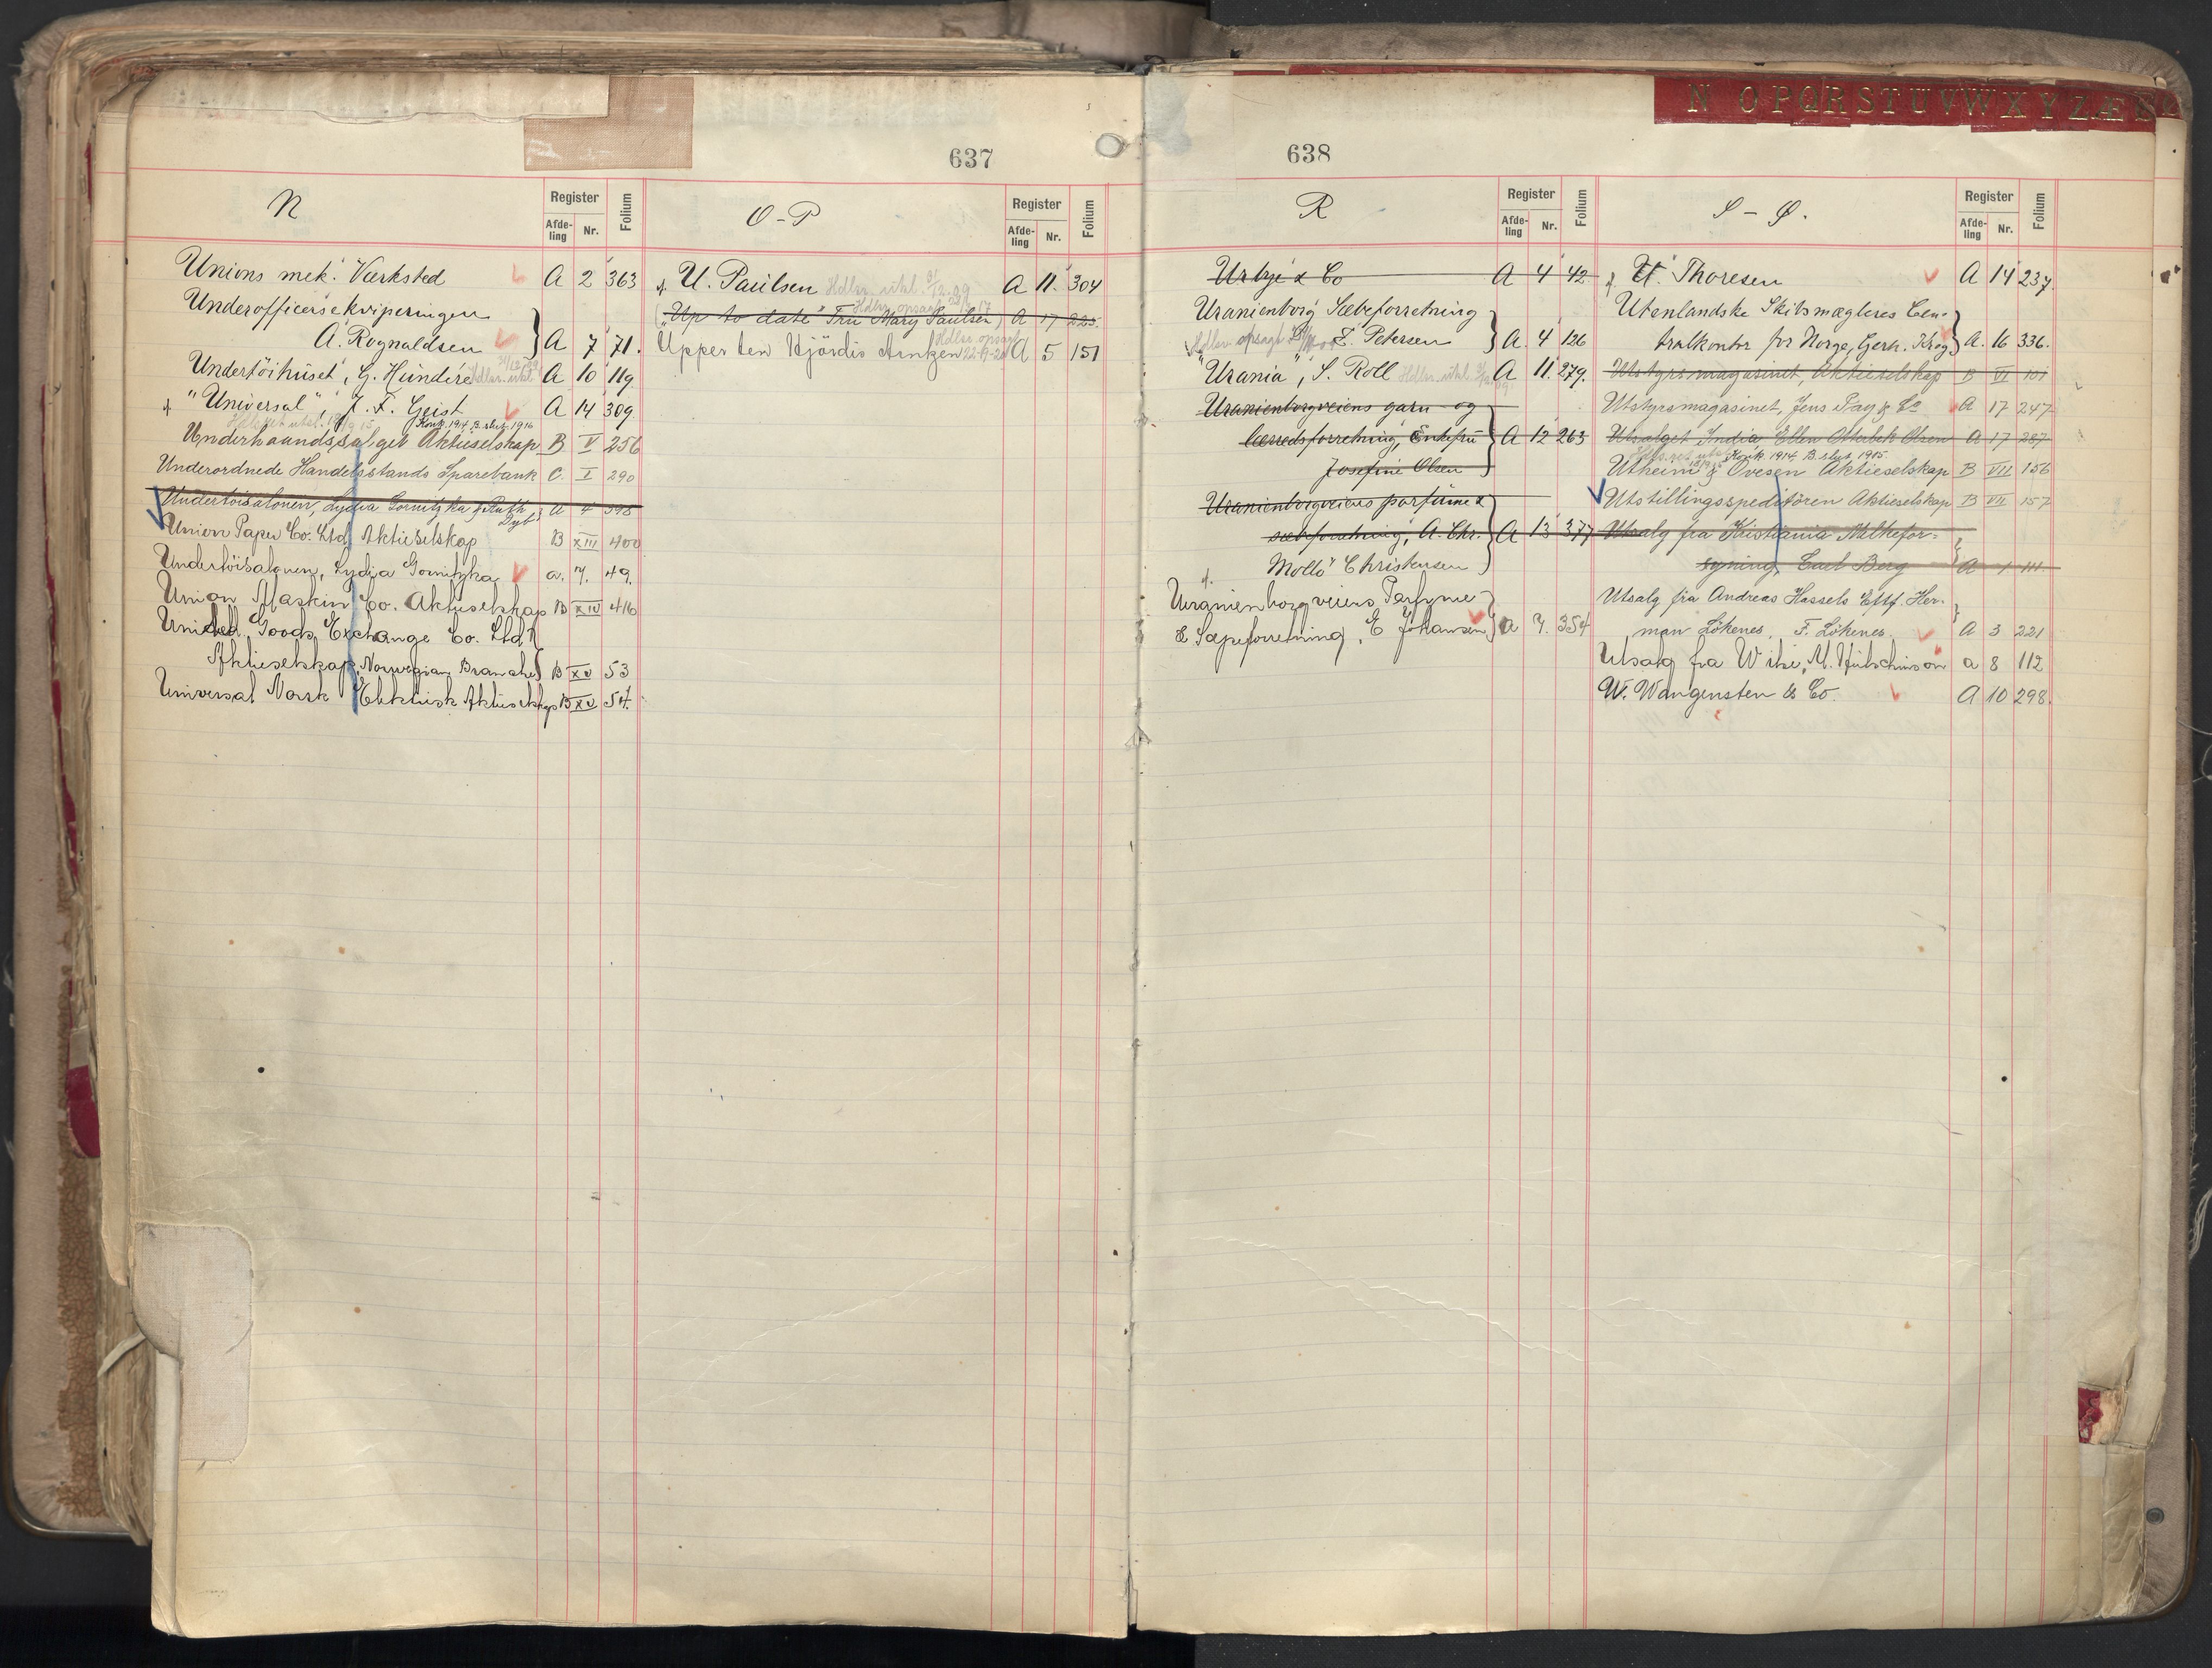 637
N
Register
Afde-
ling
Nr.
Folium
Unions mek. Værksted A 2 363
Underofficersekviperingen
A. Rognaldsen A 7 71.
Undertöihuset, G. Hundere Hdlsr. utkl. A 10 119
"Universal", J. F. Geist A 14 309
Konk. 1914 B. slut. 1916
Underhaandssalget Aktieselskap B V 256
Underordnede Handelsstands Sparebank C. I 290
Undertöisalonen, Lydia Gornitzka & Ruth
Dybt A 4 398
Union Paper Co. Ltd. Aktieselskap B XIII 400
Undertöisalonen, Lydia Gornitzka a. 7. 49.
Union Maskin Co. Aktieselskap B XIV 416
United Goods Exchange Co. Ltd.
Aktieselskap, Norwegian Branche B XV 53
Universal Norsk Elektrisk Aktieselskap B XV 54.
O-P
Register
Afde-
ling
Nr.
Folium
U. Paulsen Hdlsr. utkl. A 11. 304
Hdlsr. opsagt
("Up to date" Fru Mary Paulsen) A 17 225
Hdlsr. opsagt
Upper ten Hjördis Arntzen A 5 151
638
R
Register
Afde-
ling
Nr.
Folium
Urbye & Co A 4 42
Uranienborg Sæbeforretning
Hdlsr. opsagt E. Petersen A. 4 126
"Urania", S. Roll Hdlsr. utkl. A 11. 279.
Uranienborgveiens garn og
lærredsforretning, Enkefru A 12 263
Josefine Olsen
Uranienborgveiens parfume &
sæbeforretning, A. Chr. A 13 377
Mollö Christensen
Uranienborgveiens Parfyme
& Sæpeforretning, E Johansen A 7. 354
S - Ø.
Register
Afde-
ling
Nr.
Folium
U. Thoresen A 14 237
Utenlandske Skibsmægleres Cen-
tralkontor for Norge, Gerh. Krog A. 16 336.
Utstyrsmagasinet, Aktieselskap B VI 101
Utstyrsmagasinet, Jens Fay & Co A 17 247
Utsalget India Ellen Otterbek Olsen A 17 287
Konk 1914 B. slut. 1915
Utheim & Ovesen Aktieselskap B VII 156
Utstillingsspeditören Aktieselskap B VII 157
Utsalg fra Kristiania Melkefor-
syning, Carl Berg A 1 111
Utsalg fra Andreas Hassels Eftf. Her-
man Lökenes, F. Lökenes. A 3 221
Utsalg fra Wike, M. Hutchinson a 8 112
W. Wangensten & Co. A 10 298.
N O P Q R S T U V W X Y Z Æ